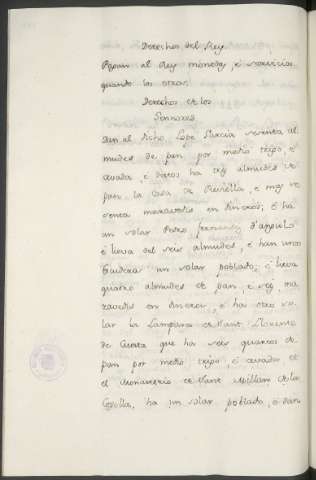 Derechos del Rey
Pagan al Rey moneda, é servicios
quando los otros.
Derechos de los
Sennores
Dan al dicho Lope Garcia setenta al
mudes de pan por medio trigo, é
cevada, é destos ha diez almudes de
pan la Casa de Ruviella, é mas se
senta maravedis en dineros; é ha
un solar Pedro Ferrandez d'
é lieva del seis almudes, é han unos
un solar poblado; é lieva
quatro almudes de pan, é seis ma
ravedis en dineros, é ha otro so
lar la Lampara de Sant Llorente
de que ha seis quartos de
pan por medio trigo, é cevada; é
el Monasterio de Sant Millan de la
Cogolla, ha un solar poblado, é dan